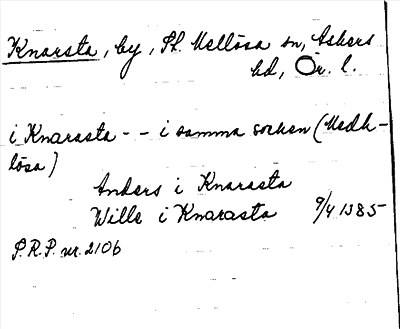 Knarsta, by, St. Mellösa sn, Askers
hd, Ör. l.
i Knarasta - - i samma socken (Medh-
lösa)
Anders i Knarasta
Wille i Knarasta 9/4 1385
S.R.P. nr. 2106